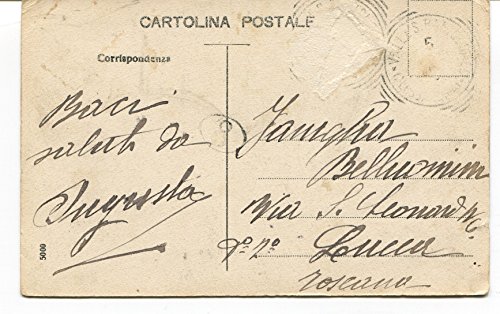 CARTOLINA POSTALE
Corrispondenza
Baci
saluti da
Augusta
Famiglia
Belluomini
Via S. Leonardo
Lucca
Toscana
5000